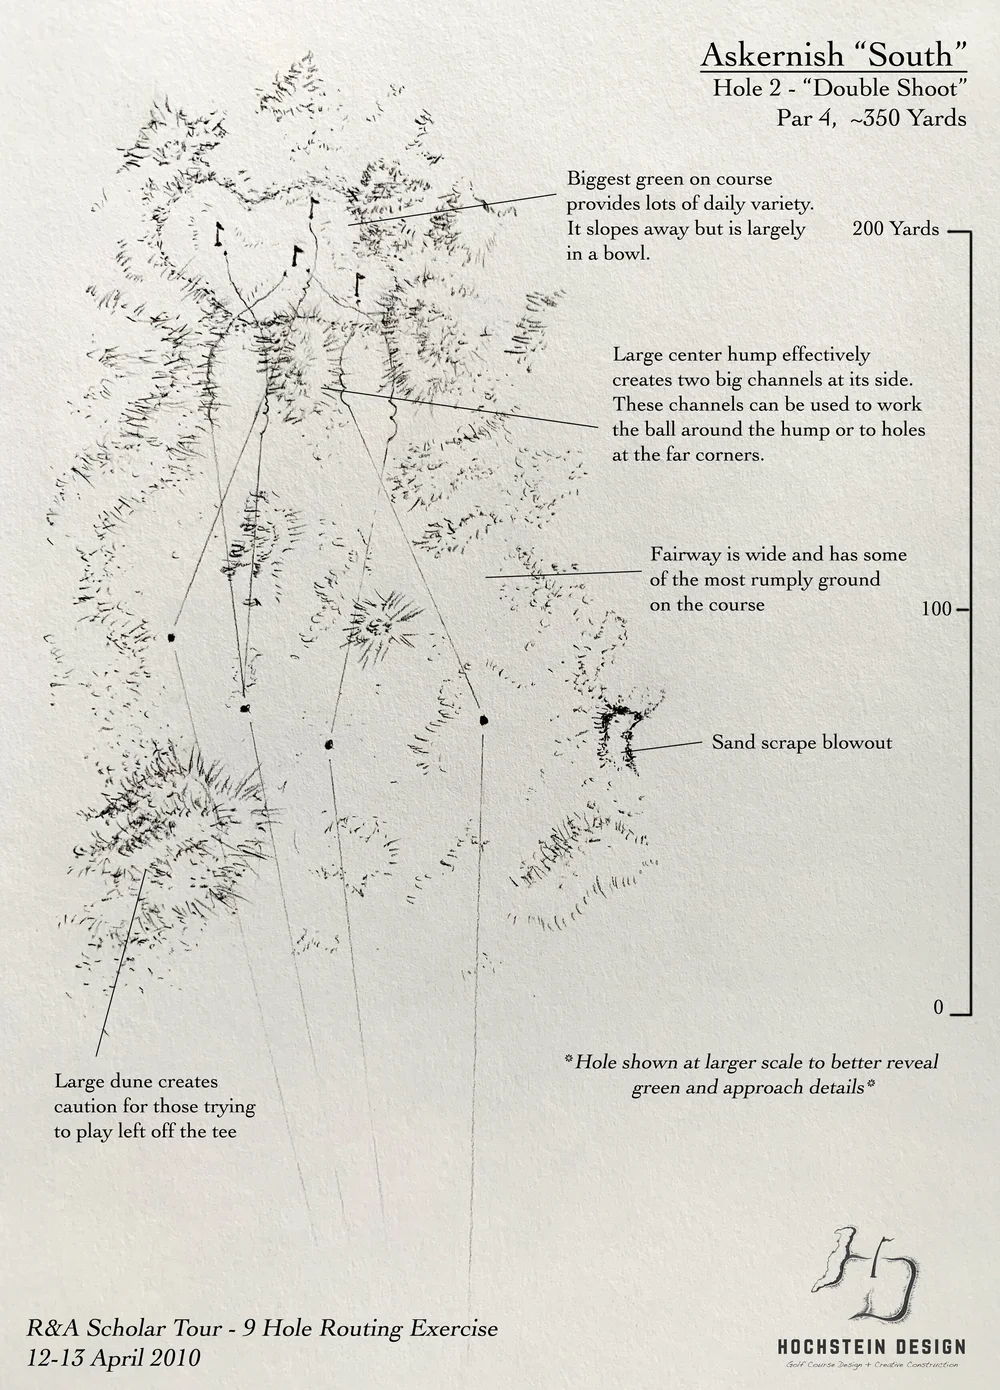 Askernish “South”
Hole 2 - “Double Shoot”
Par 4, ~350 Yards
Biggest green on course
provides lots of daily variety.
It slopes away but is largely
in a bowl.
200 Yards
Large center hump effectively
creates two big channels at its side.
These channels can be used to work
the ball around the hump or to holes
at the far corners.
Fairway is wide and has some
of the most rumply ground
on the course
100
Sand scrape blowout
0
*Hole shown at larger scale to better reveal
green and approach details*
Large dune creates
caution for those trying
to play left off the tee
R&A Scholar Tour - 9 Hole Routing Exercise
12-13 April 2010
HD
HOCHSTEIN DESIGN
Golf Course Design + Creative Construction